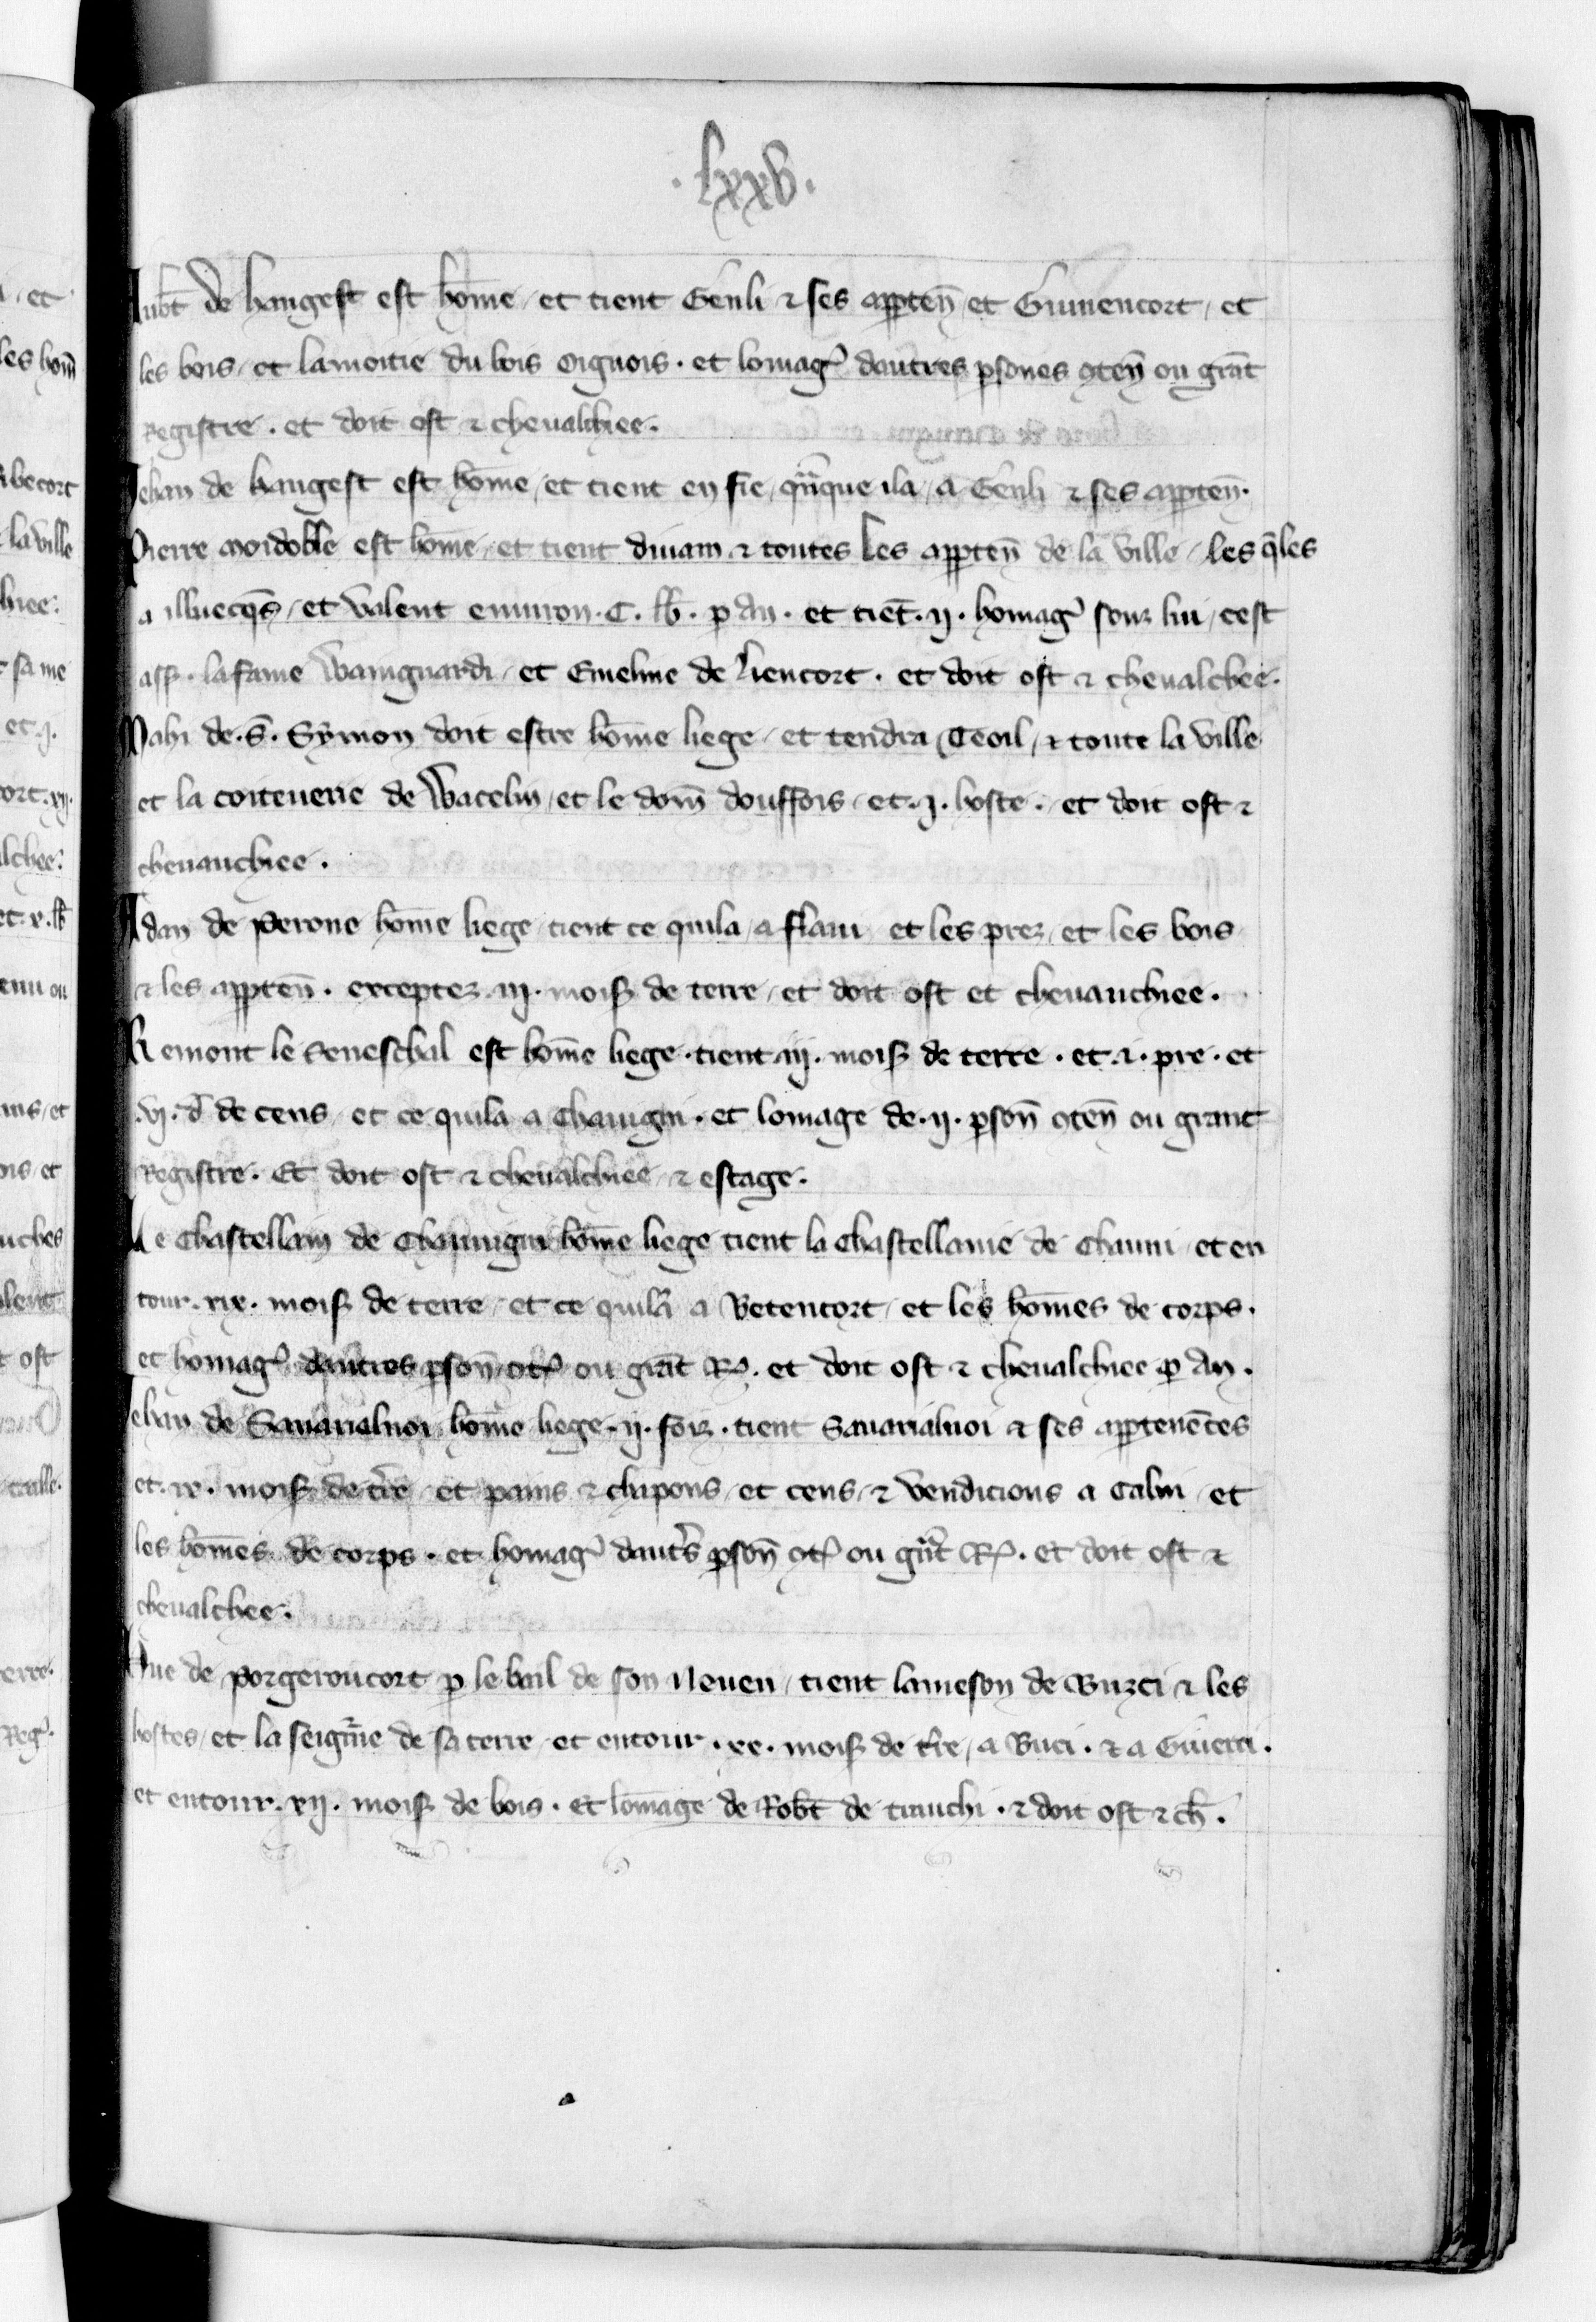 .lxxv.
Aubt̄ de hangest est hōme et tient Genli ⁊ ses apꝑten̄ et Guinencort, et
les bois, et lamoitie du bois oignois. et lomag̉ dautres ꝑsones ꝯten̄ ou grāt
Registre. et doit ost ⁊ cheualchiee.
Jehan de hangest est hōme, et tient en fie, qͣnque ila, a Genli ⁊ ses apꝑten̄.
Pierre mordoble est hōme, et tient diuam ⁊ toutes Les apꝑten̄ de la ville, les q̄les
a illuecq̄s, et valent enuiron .C. lb̄. ꝑ An. et tiēt .ii. homag̉ souz lui, cest
ass̉. lafame Wainguardi, et Emeline de Liencort. et doit ost ⁊ cheualchee.
Mahi de .S̄. Symon doit estre hōme liege, et tendra Ceoil, ⁊ toute la ville
et la coiteuerie de Wacelin, et le dom̄ douffois, et .j. hoste. et doit ost ⁊
cheuauchiee.
Adan de Perone hōme liege tient ce quila, a flaui, et les prez, et les bois
⁊ les apꝑten̄. exceptez .iij. moiß de terre, et doit ost et cheuauchiee.
Remont le Seneschal est hōme liege. tient .iij. moiß de terre. et .i. pre. et
.vj. d̄ de cens, et ce quila a Chaugni. et lomage de .ij. ꝑson̄ ꝯten̄ ou grant
Registre. Et doit ost ⁊ cheualchiee, ⁊ estage.
Le Chastellain de Chaunigni hōme liege tient la Chastellanie de Chauni, et en
tour .xix. moiß de terre, et ce quila a Betencort, et les hōmes de corps.
et homag̉ dautres ꝑson̄ ꝯt̉ ou grāt R̉. et doit ost ⁊ cheualchiee ꝑ An.
Jehan de Sauarialuoi hōme liege .ij. foiz. tient Sauarialuoi ⁊ ses apꝑtenēces
et .ix. moiß de t̉re, et pains ⁊ chapons, et cens, ⁊ vendicions a Calni, et
les hōmes de corps. et homag̉ daut̉s ꝑson̄ ꝯt̉ ou gͣt R̉. et doit ost ⁊
cheualchee.
Hue de porgeroucort ꝑ le bail de son Neueu, tient lameson de Buzci ⁊ les
hostes, et la seign̄rie de sa terre et entour .xx. moiß de t̉re, a Buci. ⁊ a Giuerci.
et entour .xij. moiß de bois. et lomage de Robt̄ de trachi. ⁊ doit ost ⁊ ch̄.